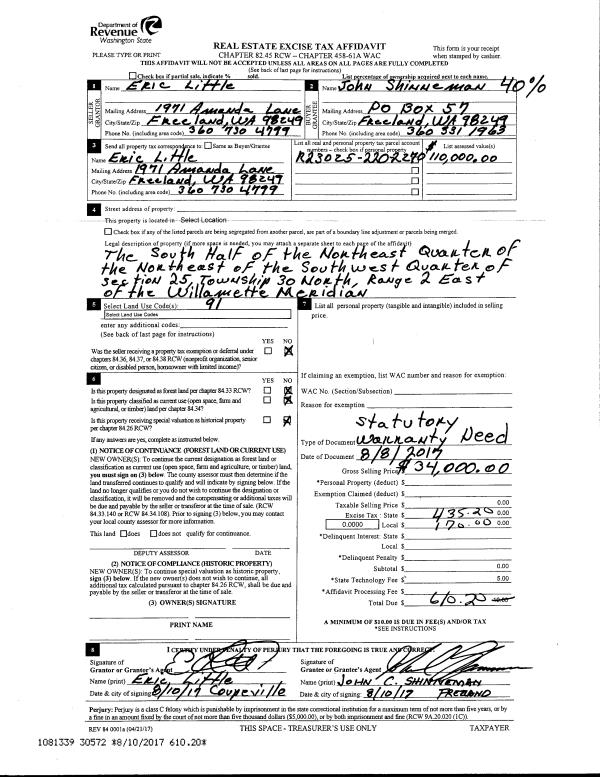 Department of
Revenue
Washington State
PLEASE TYPE OR PRINT
REAL ESTATE EXCISE TAX AFFIDAVIT
CHAPTER 82.45 RCW – CHAPTER 458-61A WAC
This form is your receipt
when stamped by cashier.
THIS AFFIDAVIT WILL NOT BE ACCEPTED UNLESS ALL AREAS ON ALL PAGES ARE FULLY COMPLETED
(See back of last page for instructions)
Check box if partial sale, indicate % sold.
List percentage of ownership acquired next to each name.
1 Name Eric Little
SELLER
GRANTOR
Mailing Address 1971 Amanda Lane
City/State/Zip Freeland, WA 98249
Phone No. (including area code) 360 730 4799
2 Name John Shinneman 40%
BUYER
GRANTEE
Mailing Address PO Box 57
City/State/Zip Freeland, WA 98249
Phone No. (including area code) 360 331 1963
3 Send all property tax correspondence to: Same as Buyer/Grantee
Name Eric Little
Mailing Address 1971 Amanda Lane
City/State/Zip Freeland, WA 98249
Phone No. (including area code) 360 730 4799
List all real and personal property tax parcel account
numbers – check box if personal property
R23025-2202270
List assessed value(s)
110,000.00
4 Street address of property:
This property is located in Select Location
Check box if any of the listed parcels are being segregated from another parcel, are part of a boundary line adjustment or parcels being merged.
Legal description of property (if more space is needed, you may attach a separate sheet to each page of the affidavit)
The South Half of the Northeast Quarter of
the Northeast of the Southwest Quarter of
Section 25, Township 30 North, Range 2 East
of the Willamette Meridian
5 Select Land Use Code(s): 91
Select Land Use Codes
enter any additional codes:
(See back of last page for instructions)
YES NO
Was the seller receiving a property tax exemption or deferral under
chapters 84.36, 84.37, or 84.38 RCW (nonprofit organization, senior
citizen, or disabled person, homeowner with limited income)?
6
YES NO
Is this property designated as forest land per chapter 84.33 RCW?
Is this property classified as current use (open space, farm and
agricultural, or timber) land per chapter 84.34?
Is this property receiving special valuation as historical property
per chapter 84.26 RCW?
If any answers are yes, complete as instructed below.
(1) NOTICE OF CONTINUANCE (FOREST LAND OR CURRENT USE)
NEW OWNER(S): To continue the current designation as forest land or
classification as current use (open space, farm and agriculture, or timber) land,
you must sign on (3) below. The county assessor must then determine if the
land transferred continues to qualify and will indicate by signing below. If the
land no longer qualifies or you do not wish to continue the designation or
classification, it will be removed and the compensating or additional taxes will
be due and payable by the seller or transferor at the time of sale. (RCW
84.33.140 or RCW 84.34.108). Prior to signing (3) below, you may contact
your local county assessor for more information.
This land does does not qualify for continuance.
DEPUTY ASSESSOR DATE
(2) NOTICE OF COMPLIANCE (HISTORIC PROPERTY)
NEW OWNER(S): To continue special valuation as historic property,
sign (3) below. If the new owner(s) does not wish to continue, all
additional tax calculated pursuant to chapter 84.26 RCW, shall be due and
payable by the seller or transferor at the time of sale.
(3) OWNER(S) SIGNATURE
PRINT NAME
7 List all personal property (tangible and intangible) included in selling
price.
If claiming an exemption, list WAC number and reason for exemption:
WAC No. (Section/Subsection)
Reason for exemption
Statutory
Type of Document Warranty Deed
Date of Document 8/8/2017
Gross Selling Price $ 34,000.00
*Personal Property (deduct) $
Exemption Claimed (deduct) $
Taxable Selling Price $ 0.00
Excise Tax : State $ 435.20 0.00
0.0000 Local $ 170.00 0.00
*Delinquent Interest: State $
Local $
*Delinquent Penalty $
Subtotal $ 0.00
*State Technology Fee $ 5.00
*Affidavit Processing Fee $
Total Due $ 610.20 10.00
A MINIMUM OF $10.00 IS DUE IN FEE(S) AND/OR TAX
*SEE INSTRUCTIONS
8 I CERTIFY UNDER PENALTY OF PERJURY THAT THE FOREGOING IS TRUE AND CORRECT.
Signature of
Grantor or Grantor's Agent
Name (print) Eric Little
Date & city of signing: 8/10/17 Coupeville
Signature of
Grantee or Grantee's Agent
Name (print) JOHN C. SHINNEMAN
Date & city of signing: 8/10/17 FREELAND
Perjury: Perjury is a class C felony which is punishable by imprisonment in the state correctional institution for a maximum term of not more than five years, or by
a fine in an amount fixed by the court of not more than five thousand dollars ($5,000.00), or by both imprisonment and fine (RCW 9A.20.020 (1C)).
REV 84 0001a (04/21/17)
THIS SPACE - TREASURER'S USE ONLY
TAXPAYER
1081339 30572 *8/10/2017 610.20*